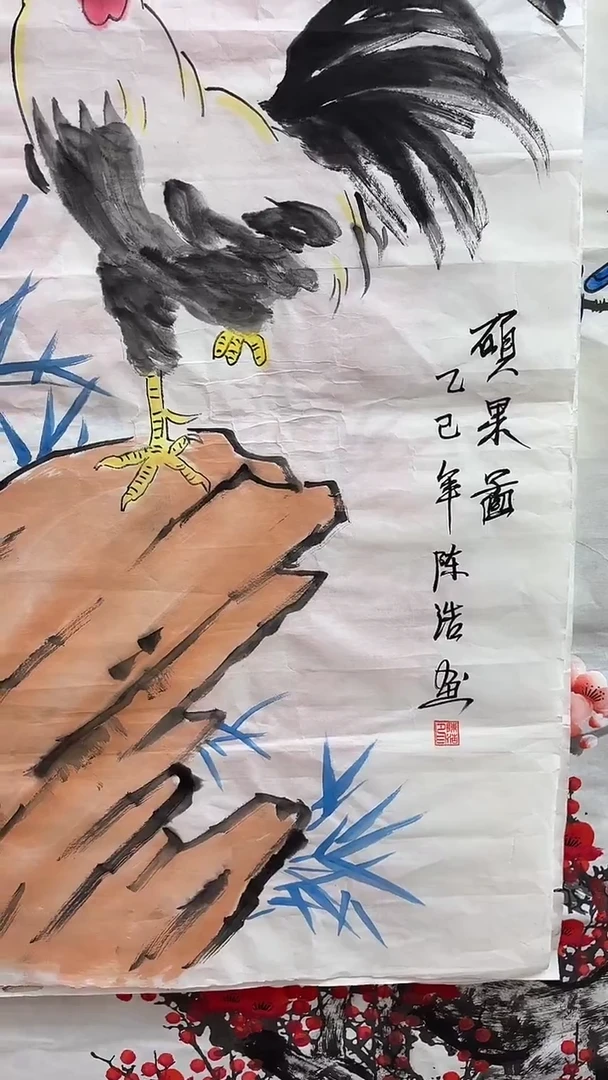 硕果图
乙巳年陈浩画